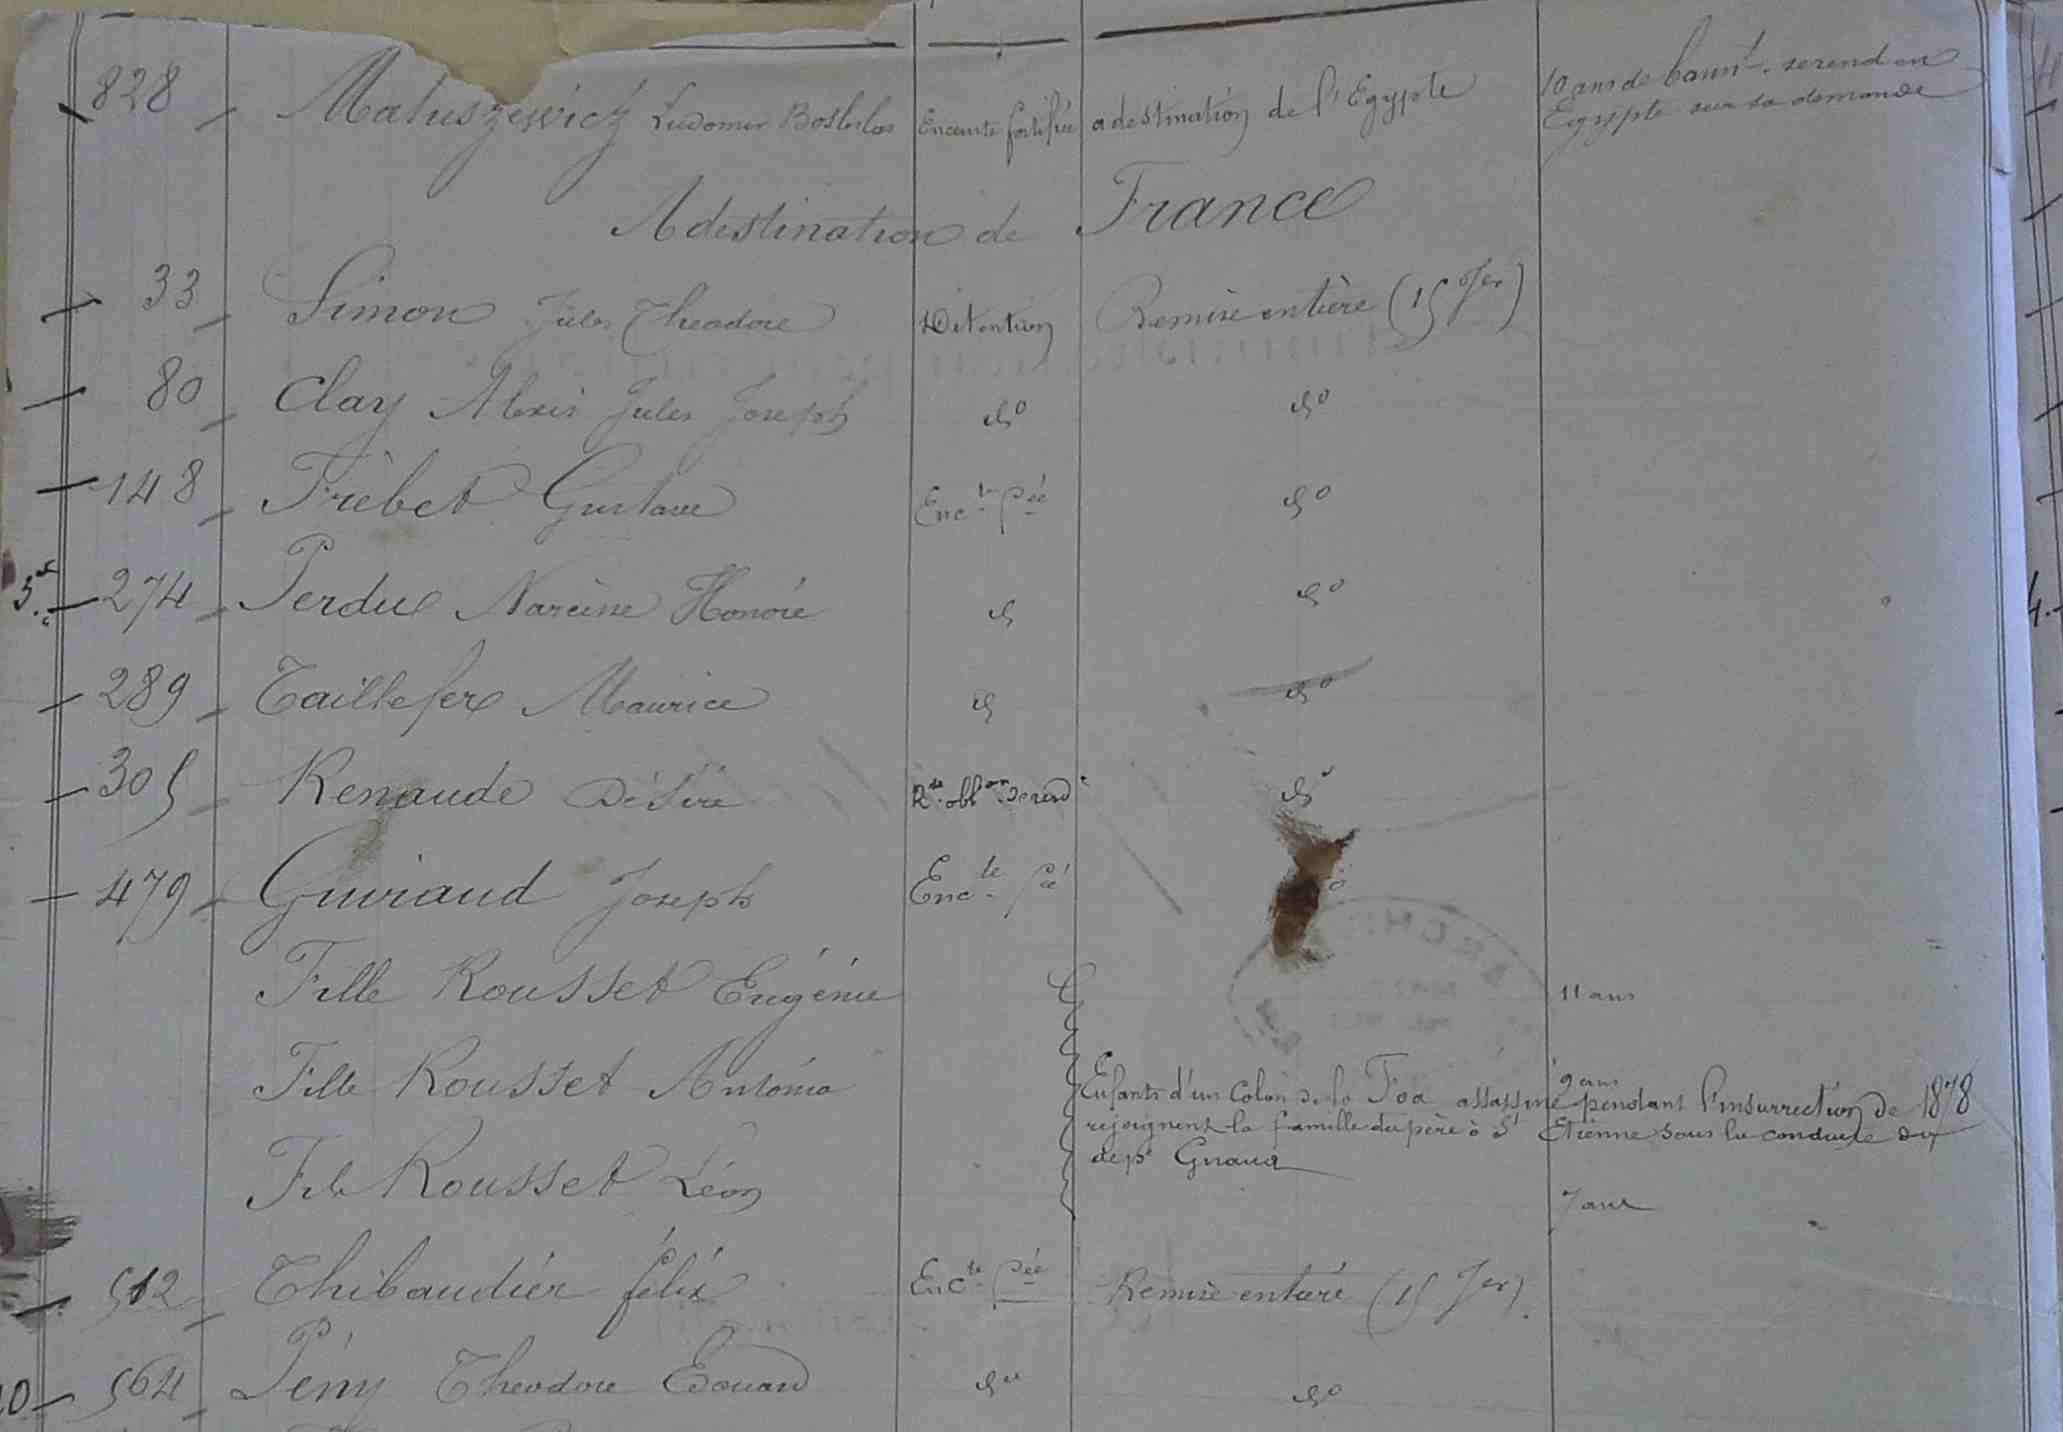 828 Matuszewicz Ludomir Enceinte fortifiée a destination de l'Egypte 10 ans de bannt. se rend en
Egypte sur sa demande
A destination de France
33 Simon Jules Theodore Détention Remise entière (15 Jer)
80 Clay Alexis Jules Joseph do do
148 Frèbet Gustave Encte fée do
274 Perdue Narcisse Honoré d do
289 Taillefer Maurice d do
305 Renaude Désiré Rte. oblon. se rend do
479 Guiraud Joseph Encte fée
Fille Rousset Eugénie 11 ans
Fille Rousset Antonia 9 ans
Enfants d'un Colon de la Foa assassiné pendant l'insurrection de 1878
rejoignent la famille du père à St Etienne sous la conduite du
Fils Rousset Léon 7 ans
512 Thibaudier félix Encte fée Remise entière (15 Jer).
564 Pémy Theodore Edouard do do